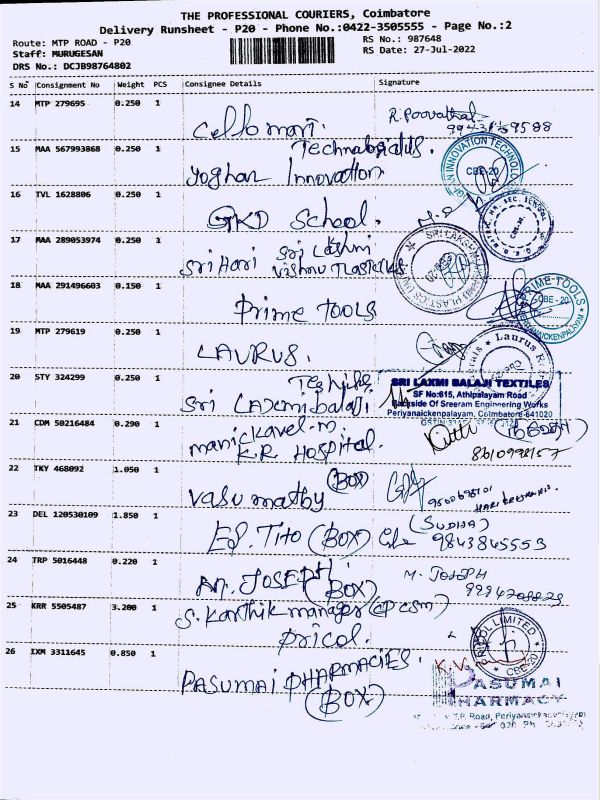 THE PROFESSIONAL COURIERS, Coimbatore
Delivery Runsheet - P20 - Phone No.:0422-3505555 - Page No.:2
Route: MTP ROAD - P20
RS No.: 987648
Staff: MURUGESAN
RS Date: 27-Jul-2022
DRS No.: DCJB98764802
S No Consignment No Weight PCS Consignee Details Signature
14 MTP 279695 0.250 1
Cello mart.
R. Poovathal
15 MAA 567993868 0.250 1
Yoghan Innovation
INNOVATION TECHNOLOG
CBE-20
16 TVL 1628806 0.250 1
GKD School.
17 MAA 289053974 0.250 1
Sri Hari Sri Lakshmi
Vishnu Plastics
18 MAA 291496603 0.150 1
Prime TOOLS
PRIME-TOOLS
CBE - 20
19 MTP 279619 0.250 1
LAURUS.
Laurus
20 STY 324299 0.250 1
Sri Laxmi balaji
SRI LAXMI BALAJI TEXTILES
SF No:615, Athipalayam Road
Backside Of Sreeram Engineering Works
Periyanaickenpalayam, Coimbatore-641020
21 CDM 50216484 0.290 1
manickavel.m.
K.R HOSPITAL.
8610998157
22 TKY 468092 1.050 1
(BOX)
Vasumathy
23 DEL 120530109 1.850 1
Es. Tito (BOX)
9843845553
24 TRP 5016448 0.220 1
An. JOSEPH
(BOX)
M. JOSEPH
25 KRR 5505487 3.200 1
S. Karthik manager
Pricol.
PRICOL LIMITED
CBE-20
26 IXM 3311645 0.850 1
PASUMAI PHARMACIES.
(BOX)
K.V.
PASUMAI
PHARMACY